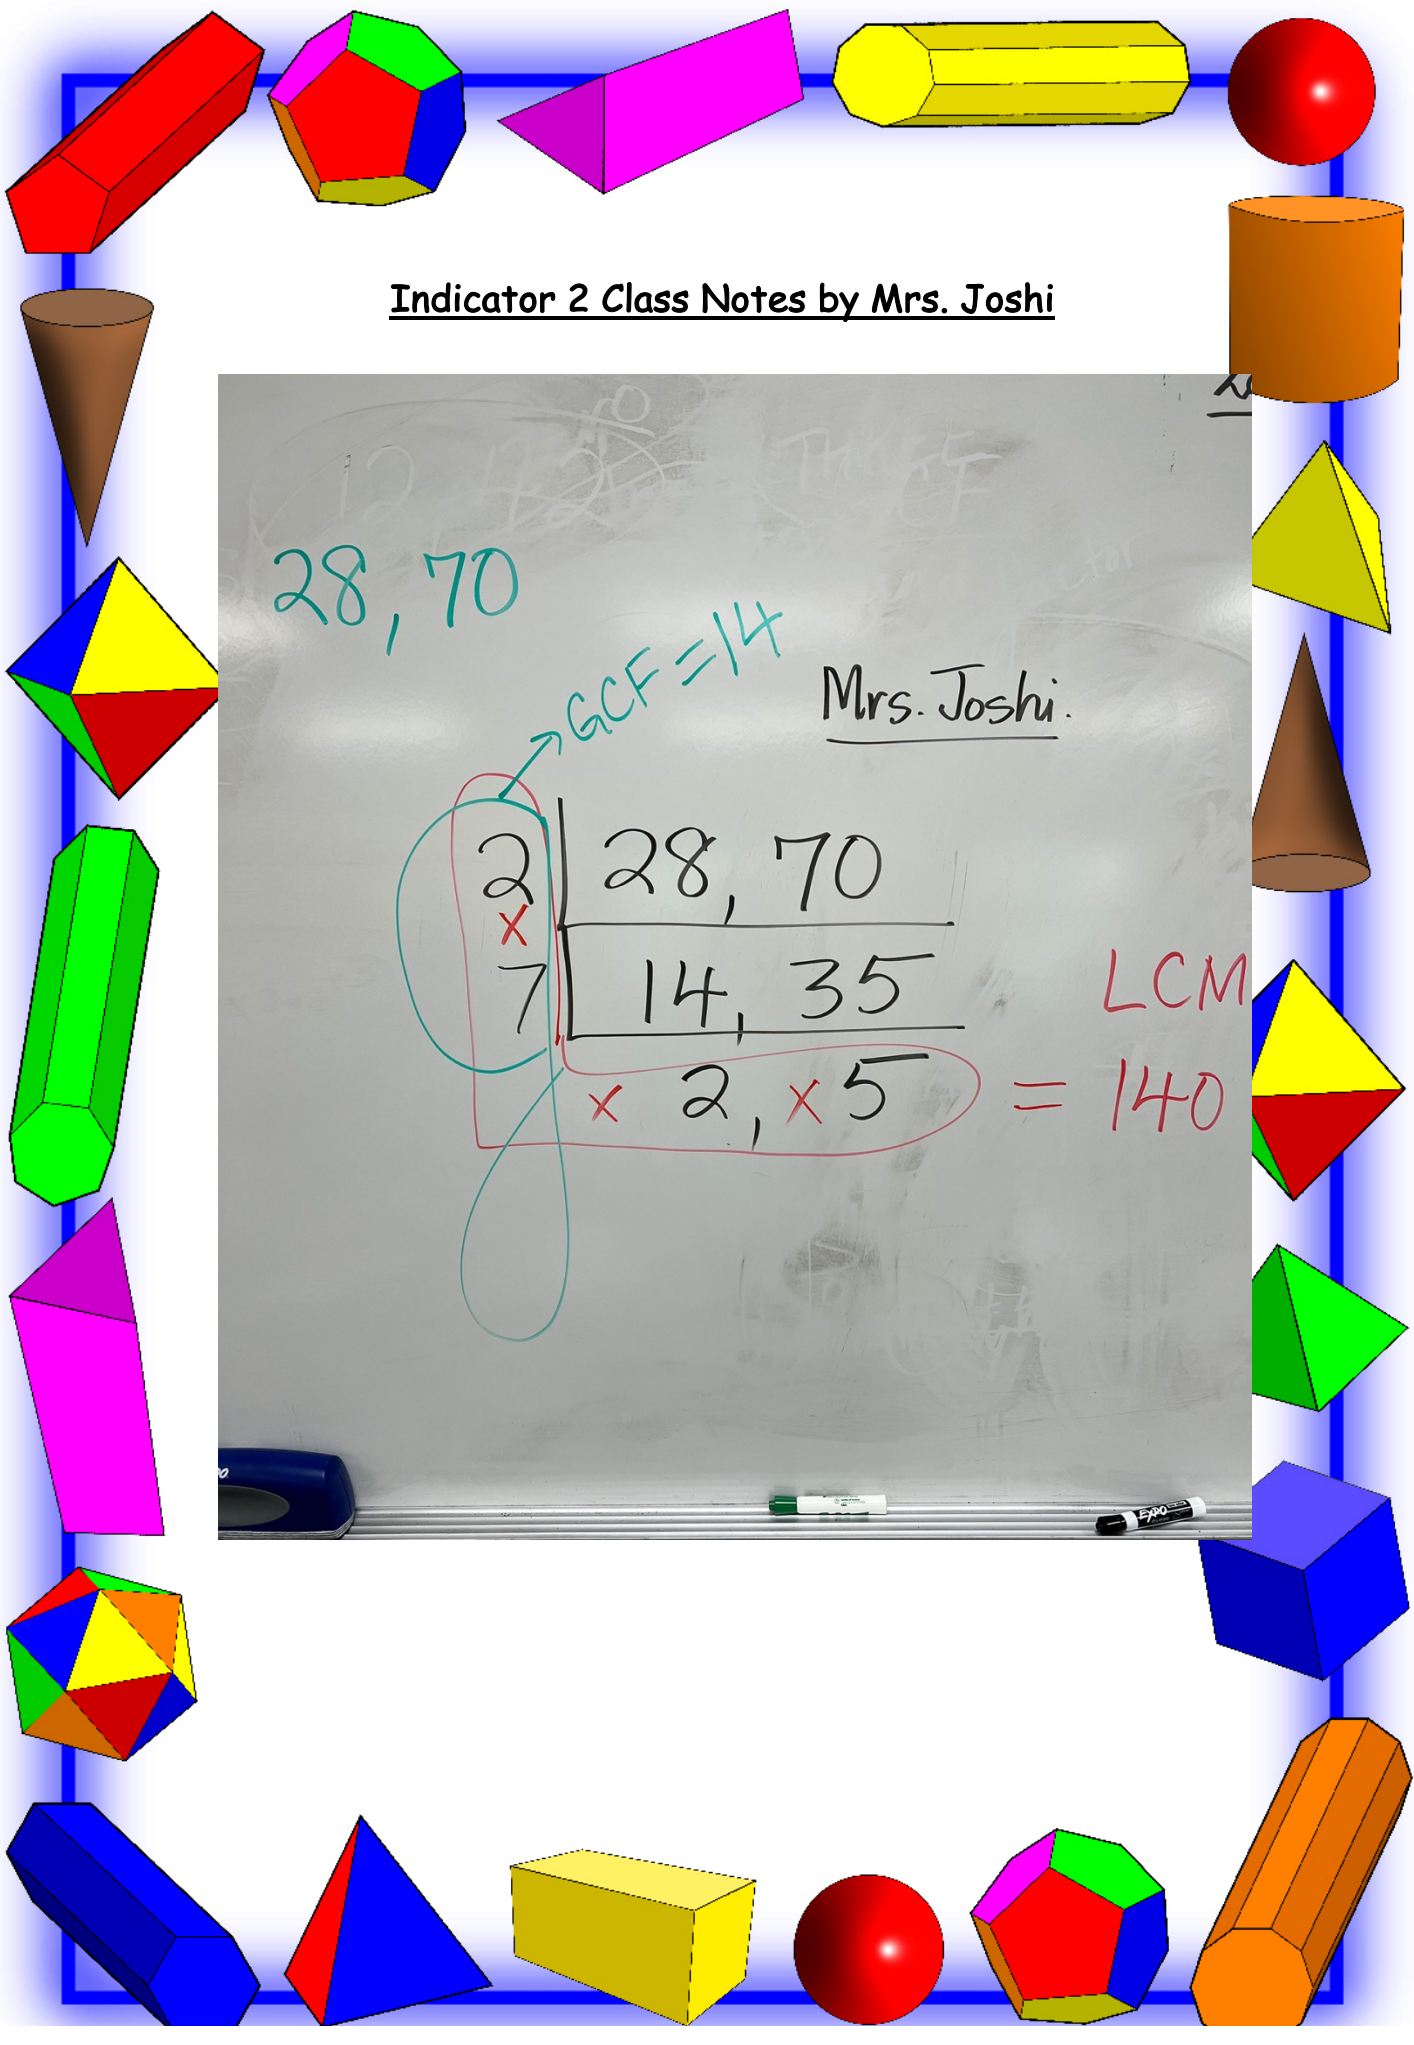 Indicator 2 Class Notes by Mrs. Joshi
28, 70
GCF = 14
Mrs. Joshi.
2 28, 70
x
7 14, 35
LCM
x 2, x 5 = 140
EXPO